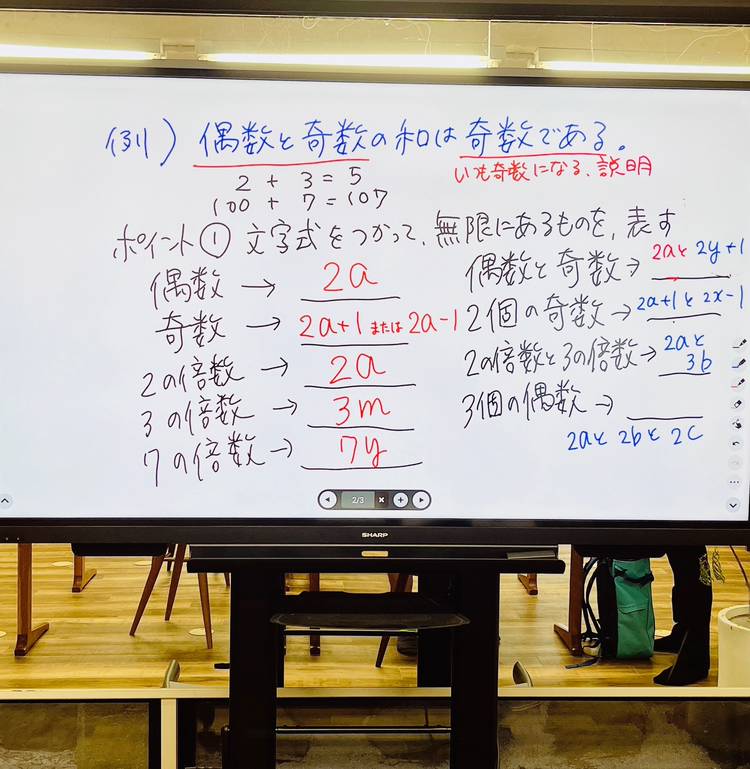 例) 偶数と奇数の和は奇数である。
いつも奇数になる、説明
2 + 3 = 5
100 + 7 = 107
ポイント① 文字式をつかって、無限にあるものを、表す
偶数 → 2a
奇数 → 2a+1 または 2a-1
2の倍数 → 2a
3の倍数 → 3m
7の倍数 → 7y
偶数と奇数→ 2aと 2y+1
2個の奇数→ 2a+1 と 2x-1
2の倍数と3の倍数→ 2aと
3b
3個の偶数→
2aと 2bと 2c
2/3
SHARP